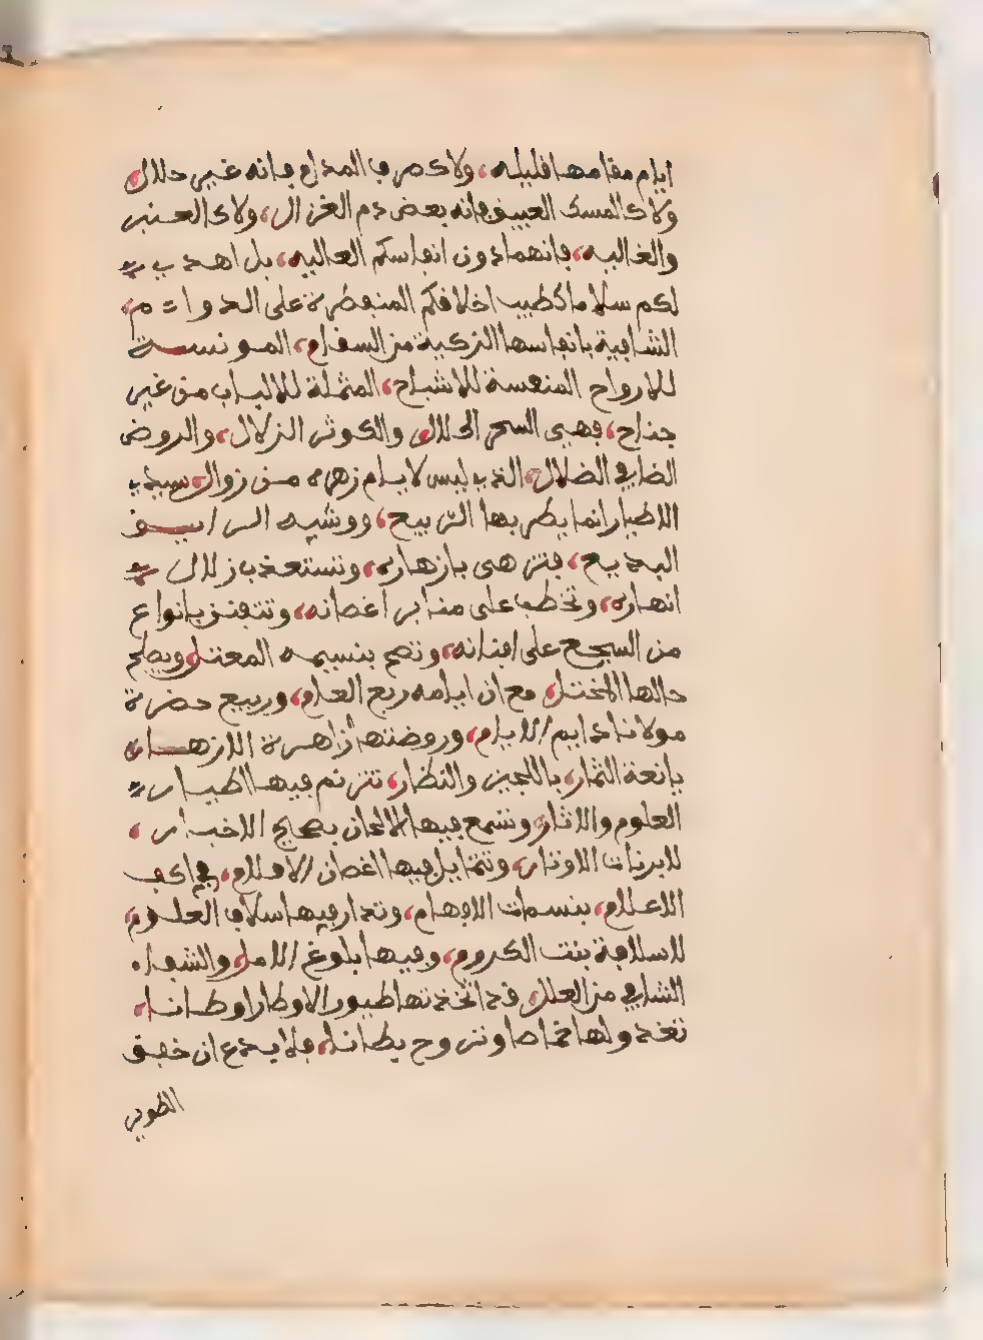 ايام مقامها قليله، ولا كصرف المدام فانه غير حلال،
ولا كالمسك العبيق فانه بعض دم الغزال، ولا كالعنبر
والغاليه، فانهما دون انفاسكم العاليه، بل اهدي
لكم سلاما كطيب اخلاقكم المتعطرة على الدوام،
الشافية بانفاسها الزكية من السقام، المونسة
للارواح المنعسة للاشباح، المثملة للالباب من غير
جناح، فهي السحر الحلال، والكوثر الزلال، والروض
الضافي الضلال، الذي ليس لايام زهره من زوال،
الاطيار انما يطربها الربيع، ووشيه الرايق
البديع، فتزهى بازهاره، وتستعذب زلال
انهاره، وتخطب على منابر اغصانه، وتتفنن بانواع
من السجع على افنانه، وتصح بنسيمه المعتل، ويصلح
حالها المختل، مع ان ايامه ربع العام، وربيع حضرة
مولانا دايم الايام، وروضتها زاهرة الازهار،
يانعة الثمار، باللجين والنظار، تترنم فيها اطيار
العلوم والاثار، وتسمع فيها الالحان بصحاح الاخبار،
لا برنات الاوتار، وتتمايل فيها اغصان الاقلام، في اكف
الاعلام، بنسمات الافهام، وتدار فيها سلاف العلوم،
لا سلافة بنت الكروم، وفيها بلوغ الامل، والشفاء
الشافي من العلل، قد اتخذتها طيور الاوطار اوطانا،
تغدو لها خماصا وتروح بطانا، فلا بدع ان خفق
الطوير